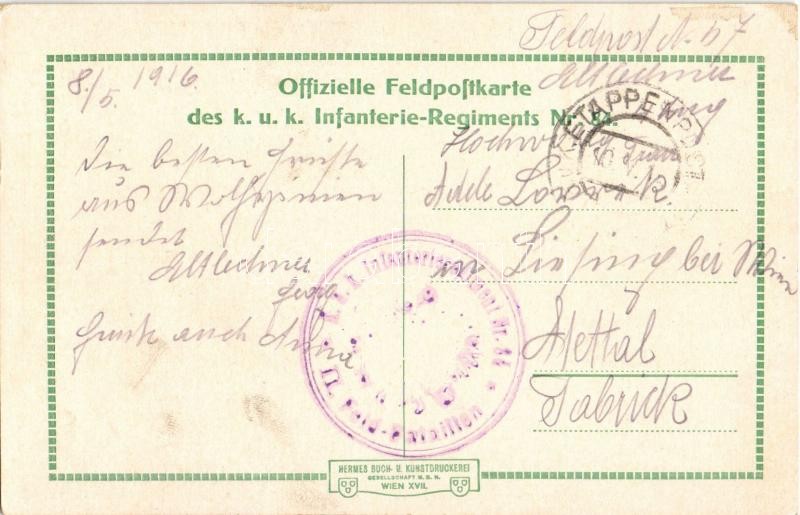 Feldpost N. 67
Altlechner
8./5. 1916.
Offizielle Feldpostkarte
des k. u. k. Infanterie-Regiments Nr.
ETAPPENPOST
Die besten Grüße
aus Wolhynien
sendet
Altlechner
Georg
Grüße auch Anna
Hochw. Frau
Adele
in Liesing bei Wien
Mettal
Fabrick
k. u. k. Infanterieregiment Nr. 84
II. Feld-Bataillon
HERMES BUCH- U. KUNSTDRUCKEREI
GESELLSCHAFT M. B. H.
WIEN XVII.